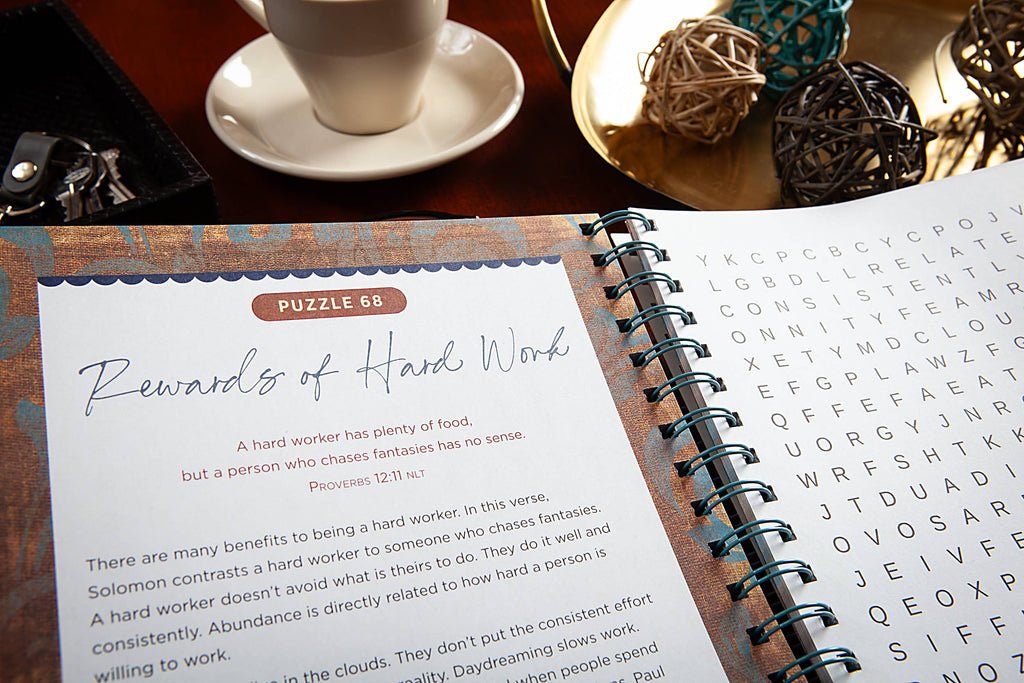 PUZZLE 68
Rewards of Hard Work
A hard worker has plenty of food,
but a person who chases fantasies has no sense.
PROVERBS 12:11 NLT
There are many benefits to being a hard worker. In this verse,
Solomon contrasts a hard worker to someone who chases fantasies.
A hard worker doesn't avoid what is theirs to do. They do it well and
consistently. Abundance is directly related to how hard a person is
willing to work.
in the clouds. They don't put the consistent effort
Daydreaming slows work.
when people spend
Paul
Y K C P C B C Y C P O J V
L G B D L L R E L A T E
C O N S I S T E N T L Y
O N N I T Y F E A M R
X E T Y M D C L O U
E F G P L A W Z F G
Q F F E F A E A T
U O R G Y J N R
W R F S H T K K
J T D U A D I
O V O S A R
J E I V F E
Q E O X P
S I F F
N O Z